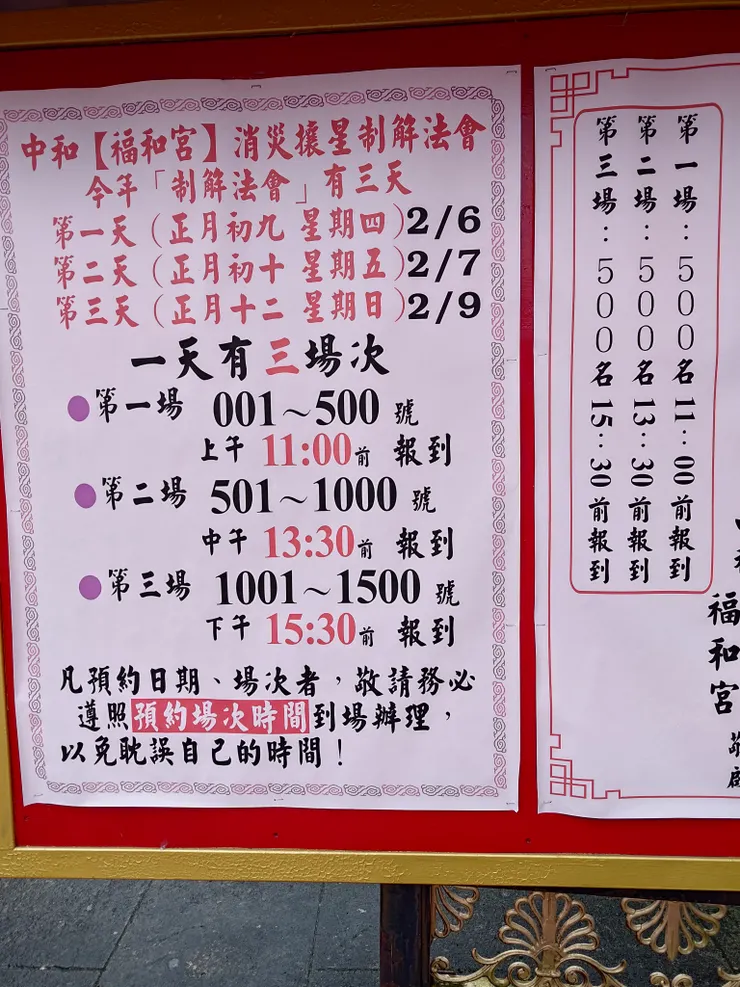 中和【福和宮】消災攘星制解法會
今年「制解法會」有三天
第一天(正月初九 星期四)2/6
第二天(正月初十 星期五)2/7
第三天(正月十二 星期日)2/9
一天有三場次
第一場 001～500 號
上午 11:00前 報到
第二場 501～1000 號
中午 13:30前 報到
第三場 1001～1500 號
下午 15:30前 報到
凡預約日期、場次者，敬請務必
遵照預約場次時間到場辦理，
以免耽誤自己的時間！
第一場：500名 11：00前報到
第二場：500名 13：30前報到
第三場：500名 15：30前報到
福和宮